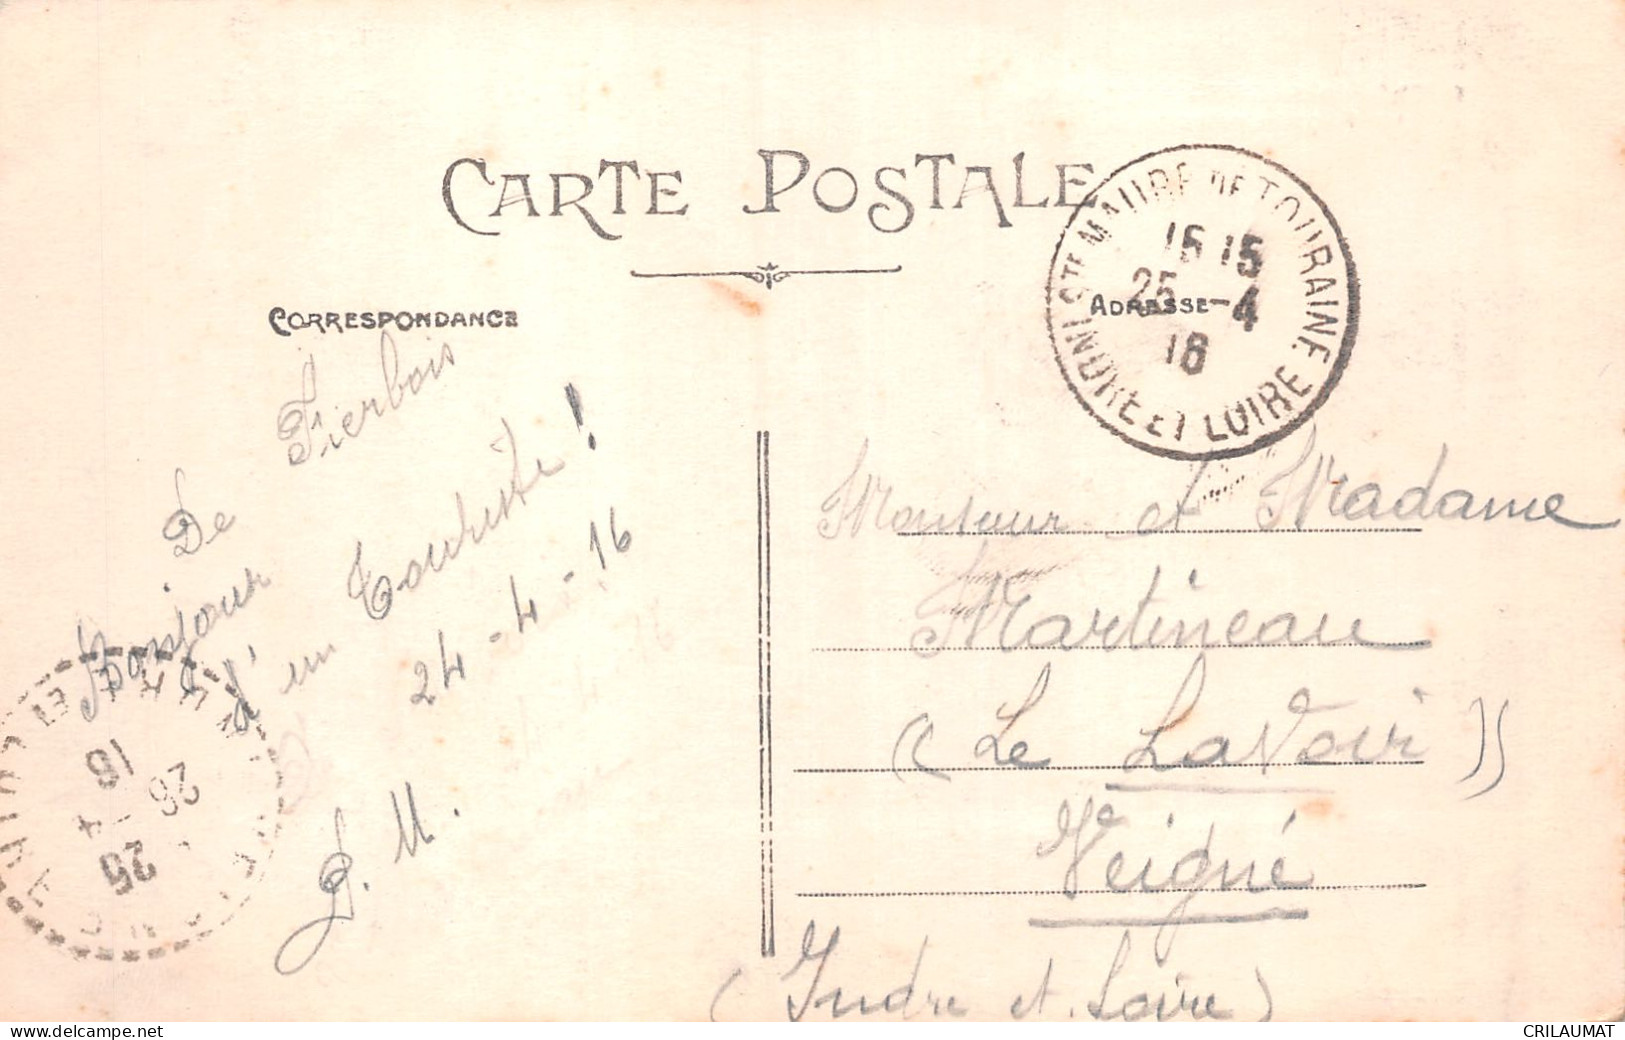 CARTE POSTALE
CORRESPONDANCE
ADRESSE
STE MAURE DE TOURAINE
15 15
25 -4
16
INDRE ET LOIRE
De Fierbois
Bonjour
d'un Touriste !
24-4-16
J. M.
Monsieur et Madame
Martineau
(Le Lavoir)
Veigné
(Indre et Loire)
16
26 - 4
25
INDRE ET LOIRE
CRILAUMAT